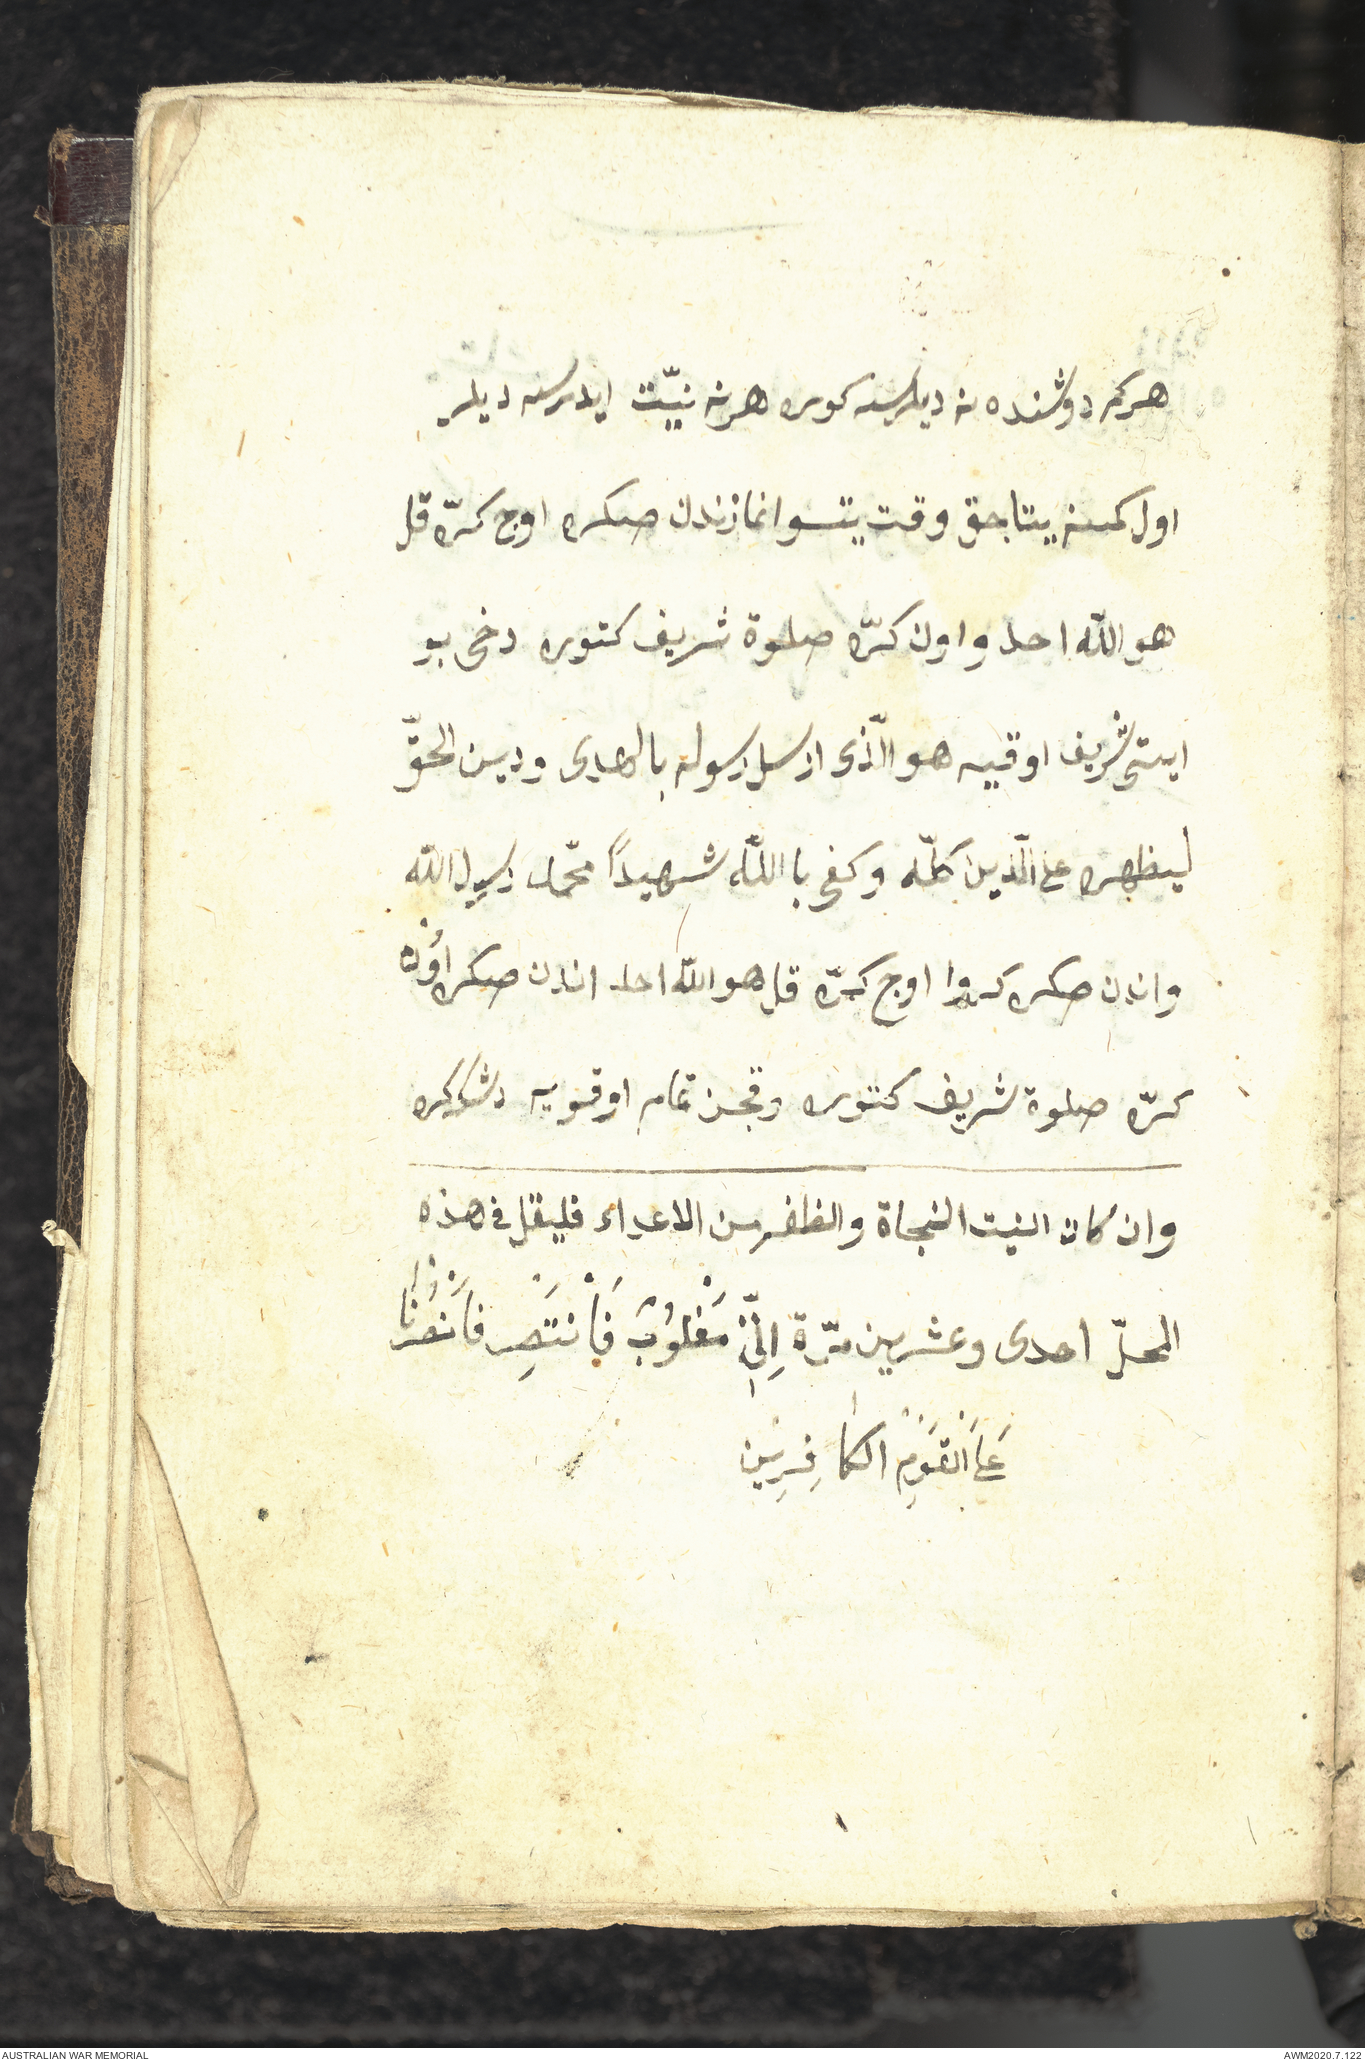 هركم دوشنده نه ديلرسه كوره هر نه نيّت ايدرسه ديلر
اول كمسنه يتاجق وقت يتسو انمازندن صكره اوج كرّه قل
هو الله احد و اون كرّه صلوة شريف كتوره دخى بو
ايتى شريف اوقيه هو الّذى ارسل رسوله بالهدى ودين الحقّ
ليظهره على الّدين كلّه وكفى با اللّه شهيداً محّمد رسول الله
واندن صكره كروا اوج كرّه قل هو الله احد اندن صكره اوُن
كرّه صلوة شريف كتوره وقجن تمام اوقويه دشككره
وان كان النيت النجاة والظفر من الاعداء فليقل فى هذه
المحلّ احدى وعشرين مرّة اِنّىِ مَغْلوُبٌ فَاْنتَصِر فَاَنْصُرْنَا
عَلىَ اْلقَوْمِ الكاَفِرِين
AUSTRALIAN WAR MEMORIAL
AWM2020.7.122